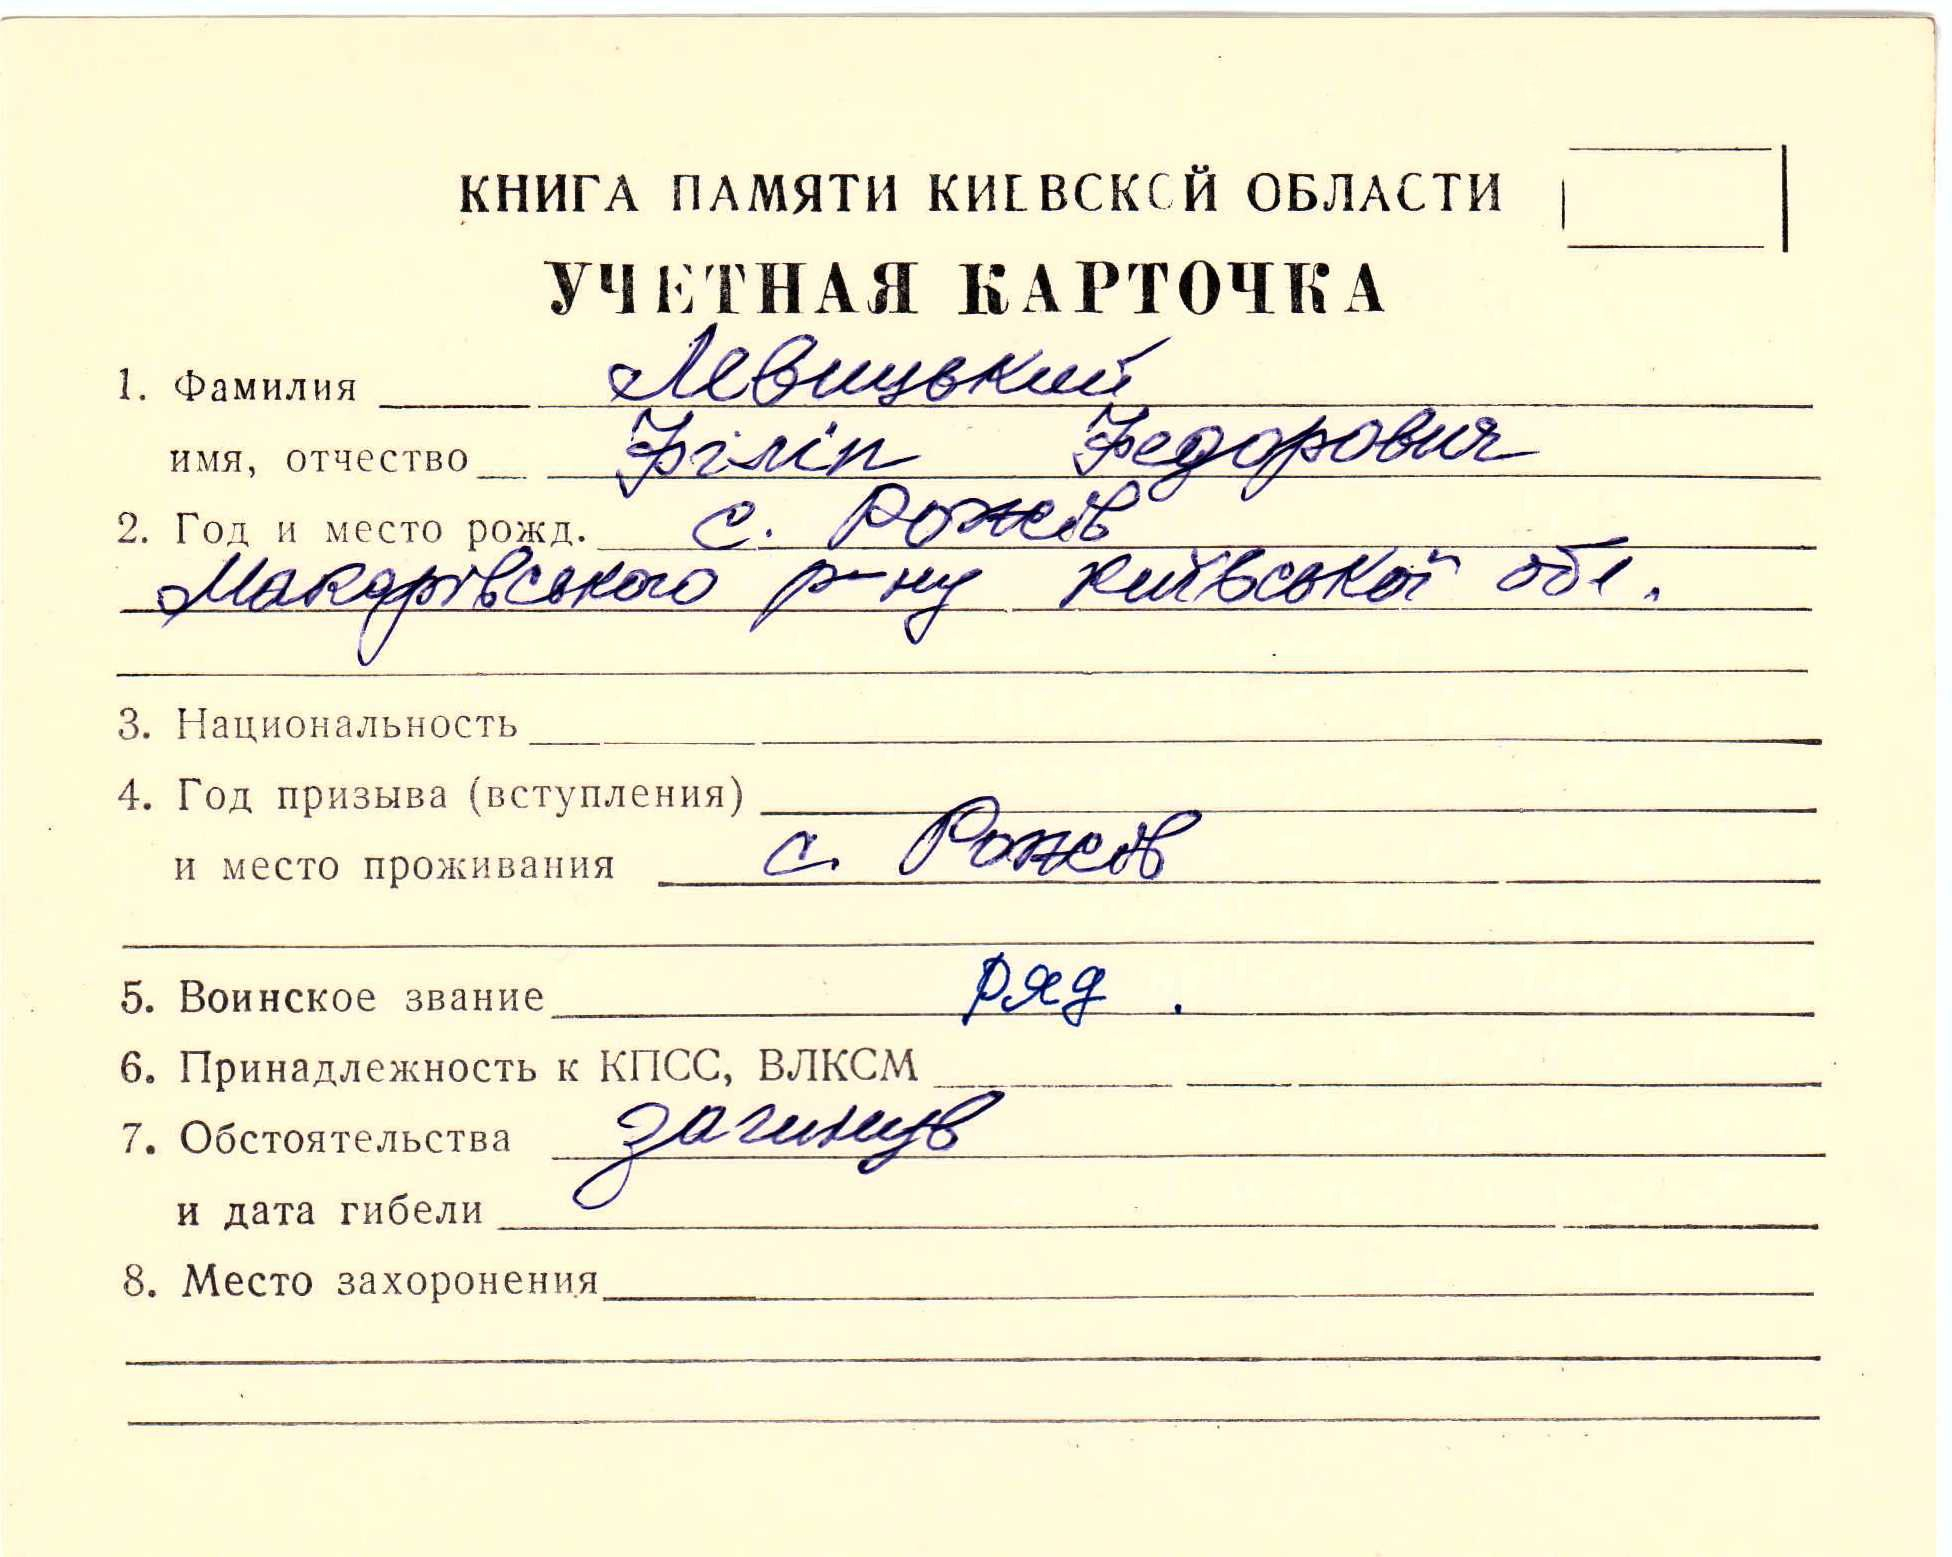 КНИГА ПАМЯТИ КИЕВСКОЙ ОБЛАСТИ
УЧЕТНАЯ КАРТОЧКА
1. Фамилия Левицький
имя, отчество Філіп Федорович
2. Год и место рожд. с. Рожів
Макарівського р-ну Київської обл.
3. Национальность
4. Год призыва (вступления)
и место проживания с. Рожів
5. Воинское звание ряд.
6. Принадлежность к КПСС, ВЛКСМ
7. Обстоятельства загинув
и дата гибели
8. Место захоронения